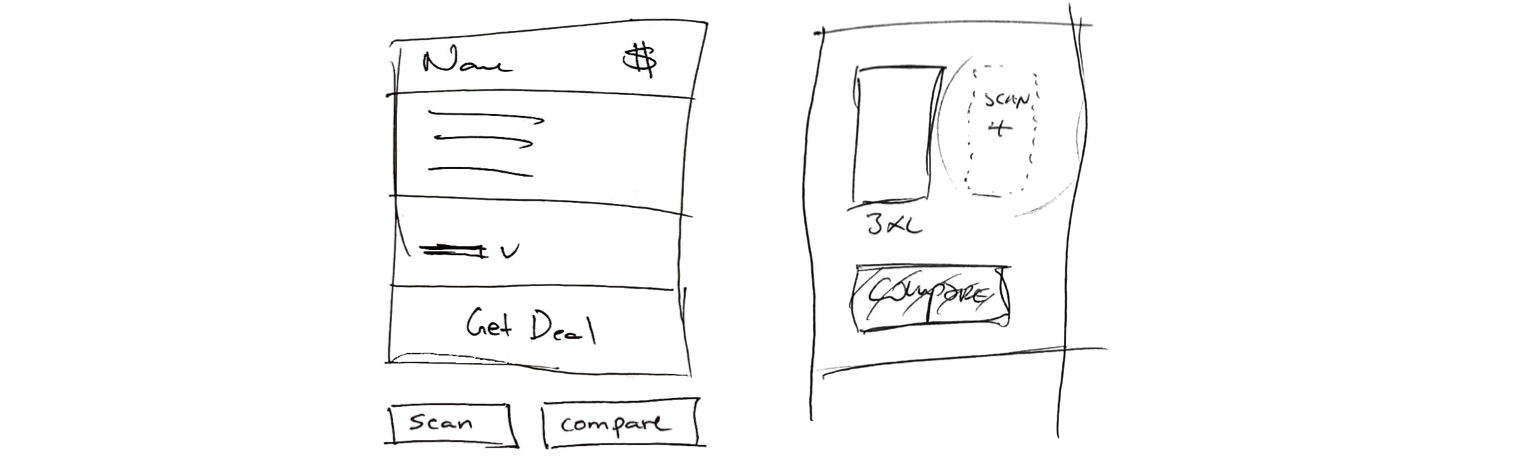 Name $
Get Deal
scan compare
SCAN
+
3XL
COMPARE